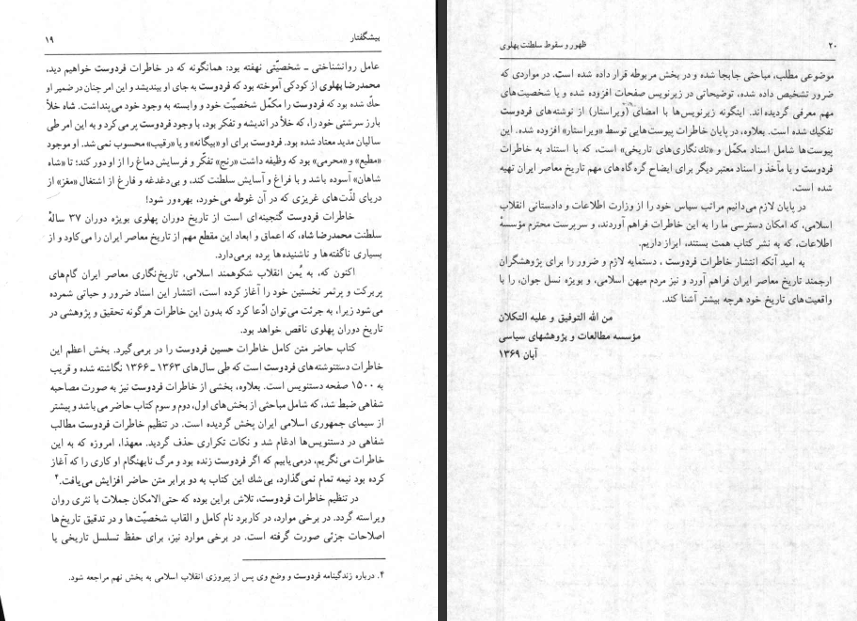 پیشگفتار ۱۹
عامل روانشناختی ـ شخصیّتی نهفته بود: همانگونه که در خاطرات فردوست خواهیم دید،
محمدرضا پهلوی از کودکی آموخته بود که فردوست به جای او بیندیشد و این امر چنان در ضمیر او
حکّ شده بود که فردوست را مکمّل شخصیّت خود و وابسته به وجود خود می‌پنداشت. شاه خلأ
بارز سرشتی خود را، که خلأ در اندیشه و تفکر بود، با وجود فردوست پر می‌کرد و به این امر طی
سالیان مدید معتاد شده بود. فردوست برای او «بیگانه» و یا «رقیب» محسوب نمی‌شد. او موجود
«مطیع» و «محرمی» بود که وظیفه داشت «رنج» تفکر و فرسایش دماغ را از او دور کند؛ تا «شاه
شاهان» آسوده باشد و با فراغ و آسایش سلطنت کند، و بی‌دغدغه و فارغ از اشتغال «مغز» از
دریای لذّت‌های غریزی که در آن غوطه می‌خورد، بهره‌ور شود!
خاطرات فردوست گنجینه‌ای است از تاریخ دوران پهلوی بویژه دوران ۳۷ سالهٔ
سلطنت محمدرضا شاه، که اعماق و ابعاد این مقطع مهم از تاریخ معاصر ایران را می‌کاود و از
بسیاری ناگفته‌ها و ناشنیده‌ها پرده برمی‌دارد.
اکنون که، به یُمن انقلاب شکوهمند اسلامی، تاریخ‌نگاری معاصر ایران گام‌های
پربرکت و پرثمر نخستین خود را آغاز کرده است، انتشار این اسناد ضرور و حیاتی شمرده
می‌شود زیرا، به جرئت می‌توان ادّعا کرد که بدون این خاطرات هرگونه تحقیق و پژوهشی در
تاریخ دوران پهلوی ناقص خواهد بود.
کتاب حاضر متن کامل خاطرات حسین فردوست را در برمی‌گیرد. بخش اعظم این
خاطرات دستنوشته‌های فردوست است که طی سال‌های ۱۳۶۳ ـ ۱۳۶۶ نگاشته شده و قریب
به ۱۵۰۰ صفحه دستنویس است. بعلاوه، بخشی از خاطرات فردوست نیز به صورت مصاحبه
شفاهی ضبط شد، که شامل مباحثی از بخش‌های اول، دوم و سوم کتاب حاضر می‌باشد و پیشتر
از سیمای جمهوری اسلامی ایران پخش گردیده است. در تنظیم خاطرات فردوست مطالب
شفاهی در دستنویس‌ها ادغام شد و نکات تکراری حذف گردید. معهذا، امروزه که به این
خاطرات می‌نگریم، درمی‌یابیم که اگر فردوست زنده بود و مرگ نابهنگام او کاری را که آغاز
کرده بود نیمه تمام نمی‌گذارد، بی‌شك این کتاب به دو برابر متن حاضر افزایش می‌یافت.۴
در تنظیم خاطرات فردوست، تلاش براین بوده که حتی‌الامکان جملات با نثری روان
ویراسته گردد. در برخی موارد، در کاربرد نام کامل و القاب شخصیّت‌ها و در تدقیق تاریخ‌ها
اصلاحات جزئی صورت گرفته است. در برخی موارد نیز، برای حفظ تسلسل تاریخی یا
۴. درباره زندگینامه فردوست و وضع وی پس از پیروزی انقلاب اسلامی به بخش نهم مراجعه شود.
۲۰ ظهور و سقوط سلطنت پهلوی
موضوعی مطلب، مباحثی جابجا شده و در بخش مربوطه قرار داده شده است. در مواردی که
ضرور تشخیص داده شده، توضیحاتی در زیرنویس صفحات افزوده شده و یا شخصیت‌های
مهم معرفی گردیده‌اند. اینگونه زیرنویس‌ها با امضای (ویراستار) از نوشته‌های فردوست
تفکیك شده است. بعلاوه، در پایان خاطرات پیوست‌هایی توسط «ویراستار» افزوده شده. این
پیوست‌ها شامل اسناد مکمّل و «تك‌نگاری‌های تاریخی» است، که با استناد به خاطرات
فردوست و یا مآخذ و اسناد معتبر دیگر برای ایضاح گره‌گاه‌های مهم تاریخ معاصر ایران تهیه
شده است.
در پایان لازم می‌دانیم مراتب سپاس خود را از وزارت اطلاعات و دادستانی انقلاب
اسلامی، که امکان دسترسی ما را به این خاطرات فراهم آوردند، و سرپرست محترم مؤسسهٔ
اطلاعات، که به نشر کتاب همت بستند، ابراز داریم.
به امید آنکه انتشار خاطرات فردوست ، دستمایه لازم و ضرور را برای پژوهشگران
ارجمند تاریخ معاصر ایران فراهم آورد و نیز مردم میهن اسلامی، و بویژه نسل جوان، را با
واقعیت‌های تاریخ خود هرچه بیشتر آشنا کند.
من الله التوفیق و علیه التکلان
مؤسسه مطالعات و پژوهشهای سیاسی
آبان ۱۳۶۹